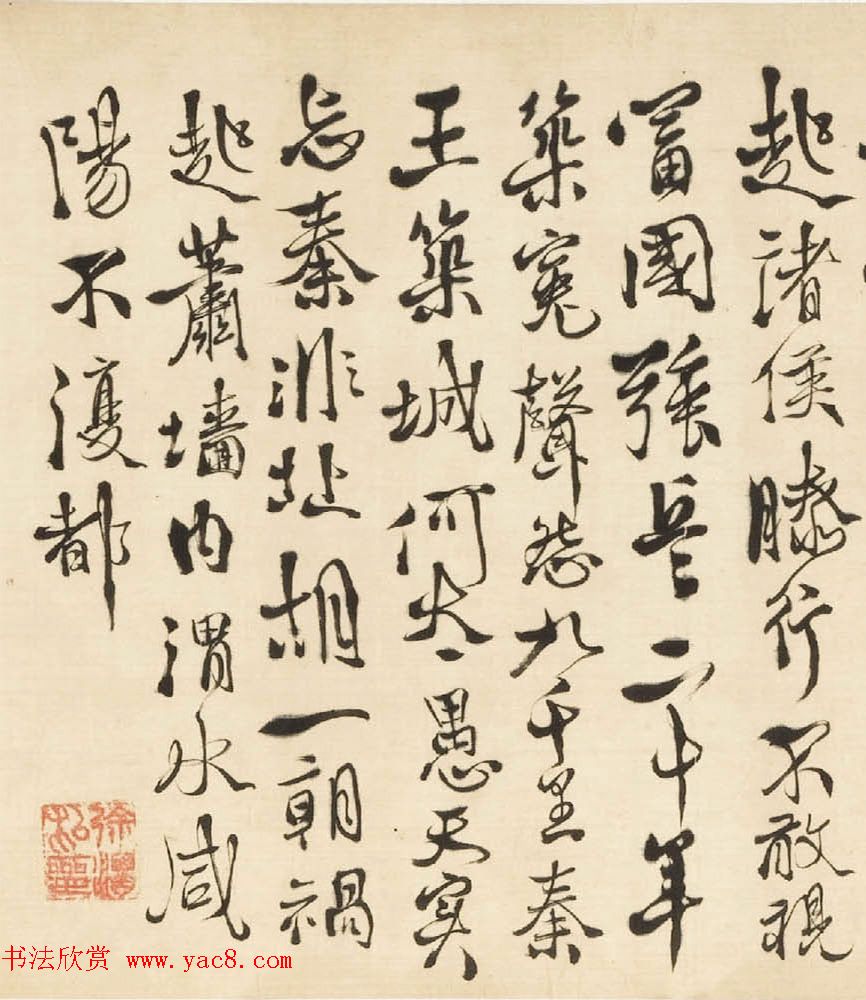 起諸侯膝行不敢視
富國強兵二十年
築冤聲愁九千里秦
王築城何太愚天實
忘秦非北胡一朝禍
起蕭墻內渭水咸
陽不復都
书法欣赏 www.yac8.com